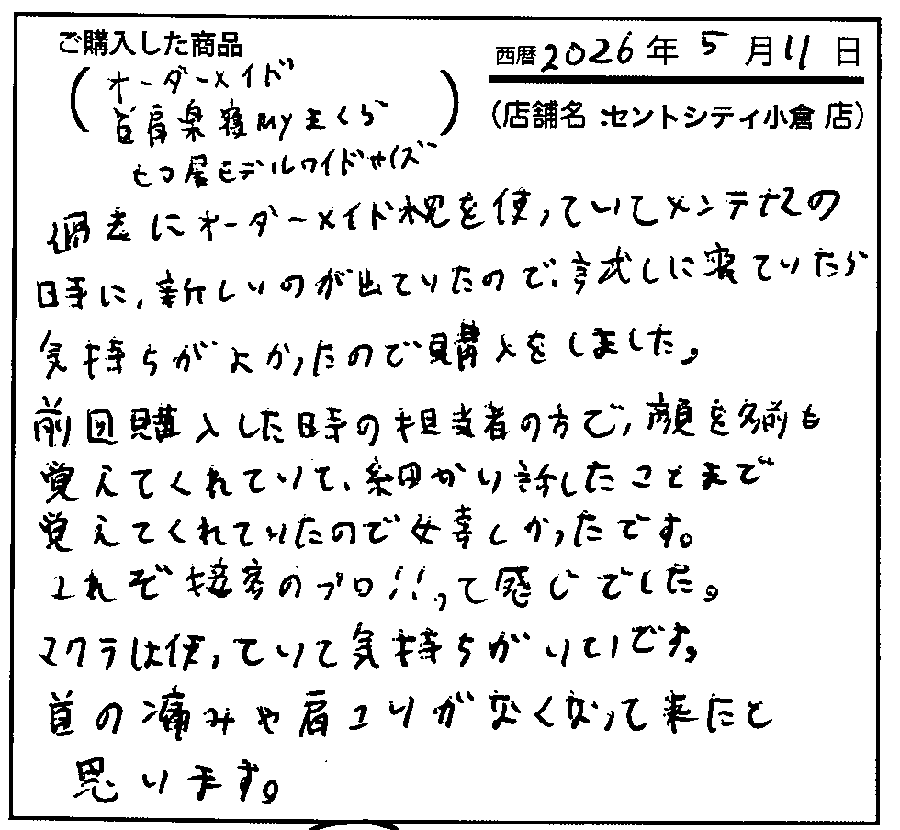 ご購入した商品
西暦2026年5月11日
(オーダーメイド
首肩楽寝Myまくら)
(店舗名:セントシティ小倉店)
七つ星モデルワイドサイズ
過去にオーダーメイド枕を使っていてメンテナスの
時に、新しいのが出ていたので、試しに寝ていたら
気持ちがよかったので購入をしました。
前回購入した時の担当者の方で、顔を名前も
覚えてくれていて、細かい話したことまで
覚えてくれていたので嬉しかったです。
これぞ接客のプロ!!って感じでした。
マクラは使っていて気持ちがいいです。
首の痛みや肩コリがなくなって来たと
思います。